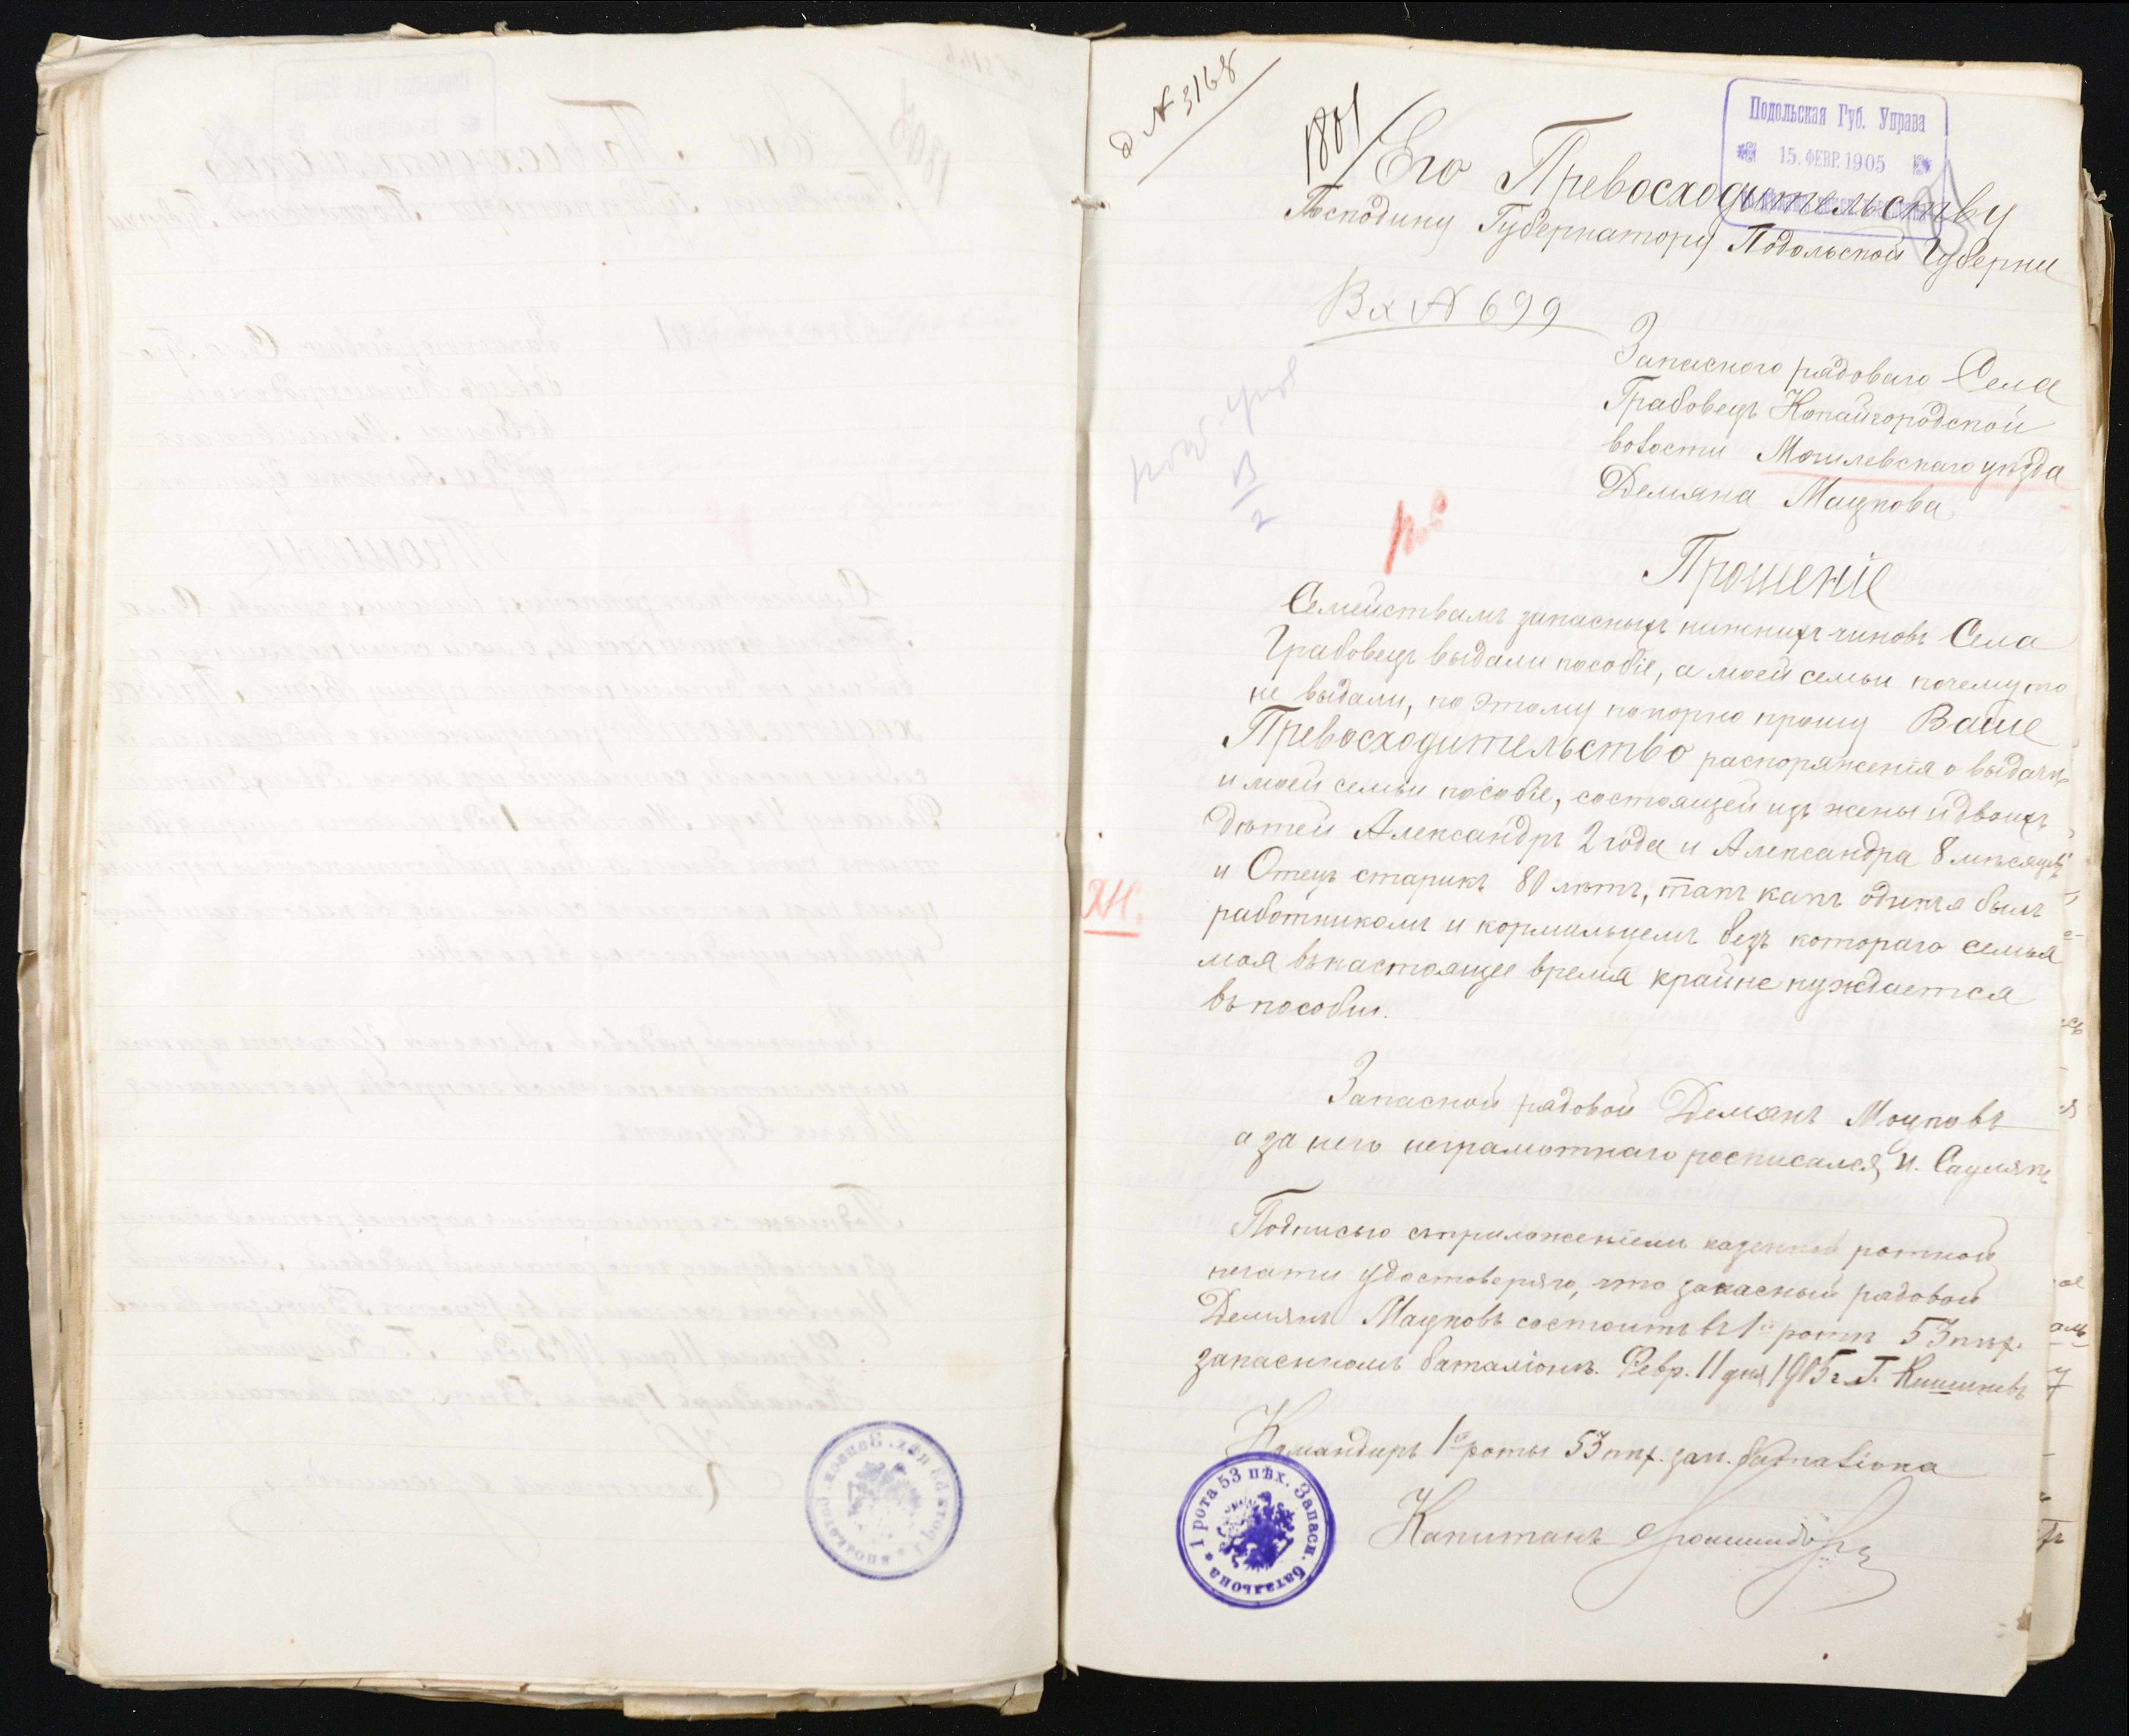 д № 3168
1801
Подольская Губ. Управа
15. ФЕВР. 1905
Его Превосходительству
Господину Губернатору Подольской Губерни
Вх № 699
Запасного рядоваго Села
Грабовецъ Копайгородской
волости Могилевскаго уѣзда
Демяна Мацкова
Прошеніе
Семействамъ запасныхъ нижнихъ чиновъ Села
Грабовецъ выдали пособіе, а моей семьи почемуто
не выдали, по этому покорно прошу Ваше
Превосходительство распоряженія о выдачѣ
и моей семьи пособіе, состоящей изъ жены и двоихъ
дѣтей Александръ 2 года и Александра 8 мѣсяцевъ
и Отецъ старикъ 80 лѣтъ, такъ какъ одинъ я былъ
работникомъ и кормильцемъ безъ котораго семья
моя въ настоящее время крайне нуждается
въ пособіи.
Запасной рядовой Демянъ Мацковъ
а за него неграмотнаго росписался И.
Подписью съ приложеніемъ казенной ротной
печати удостоверяю, что запасный рядовой
Демянъ Мацковъ состоитъ въ 1й ротѣ 53 пѣх.
запасномъ баталіонѣ. Февр. 11 дня 1905 г. Г. Кишиневъ
Командиръ 1й роты 53 пѣх. зап. баталіона
Капитанъ
1 рота 53 пѣх. Запасн. баталіона